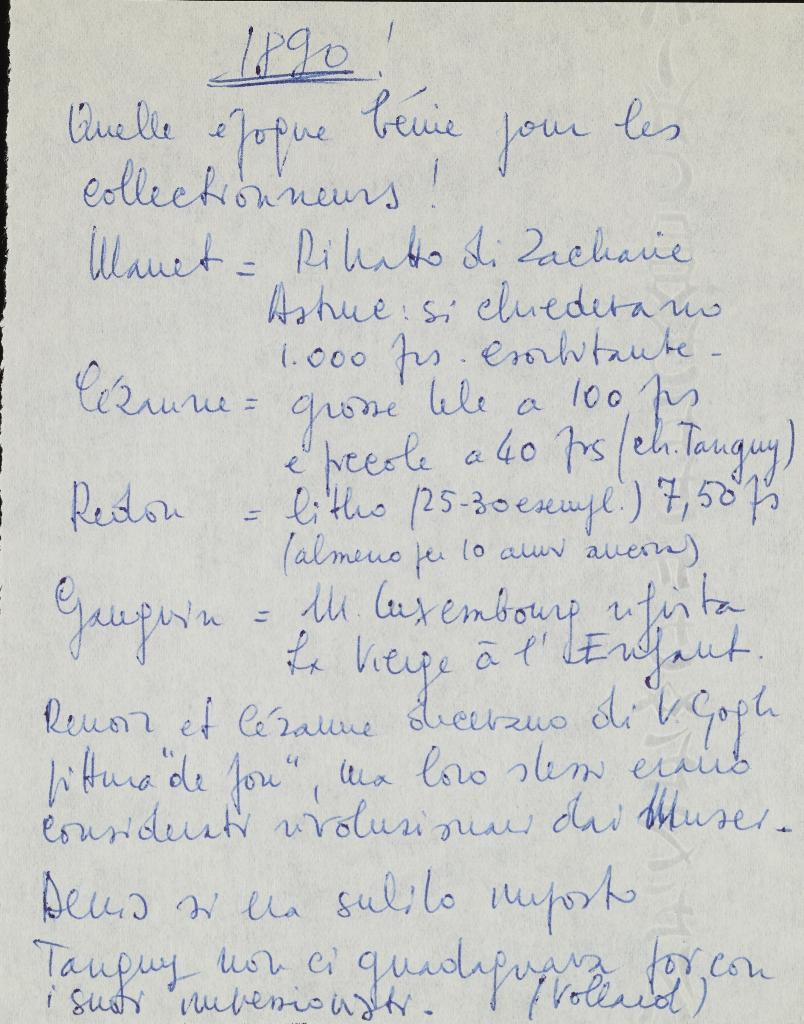 1890!
Quelle epoque bénie pour les
collectionneurs!
Manet = Ritratto di Zacharie
Astruc: si chiedevano
1.000 frs. esorbitante -
Cézanne = grosse tele a 100 frs
e piccole a 40 frs (ch. Tanguy)
Redon = litho (25-30 esempl.) 7,50 fs
(almeno per 10 anni ancora)
Gauguin = M. Luxembourg rifiuta
La Vierge à l'Enfant.
Renoir et Cézanne dicevano di V. Gogh
pittura "de fou", ma loro stessi erano
considerati rivoluzionari dai Musei. -
Denis si era subito imposto
Tanguy non ci guadagnava poi con
i suoi impressionisti. (Vollard)